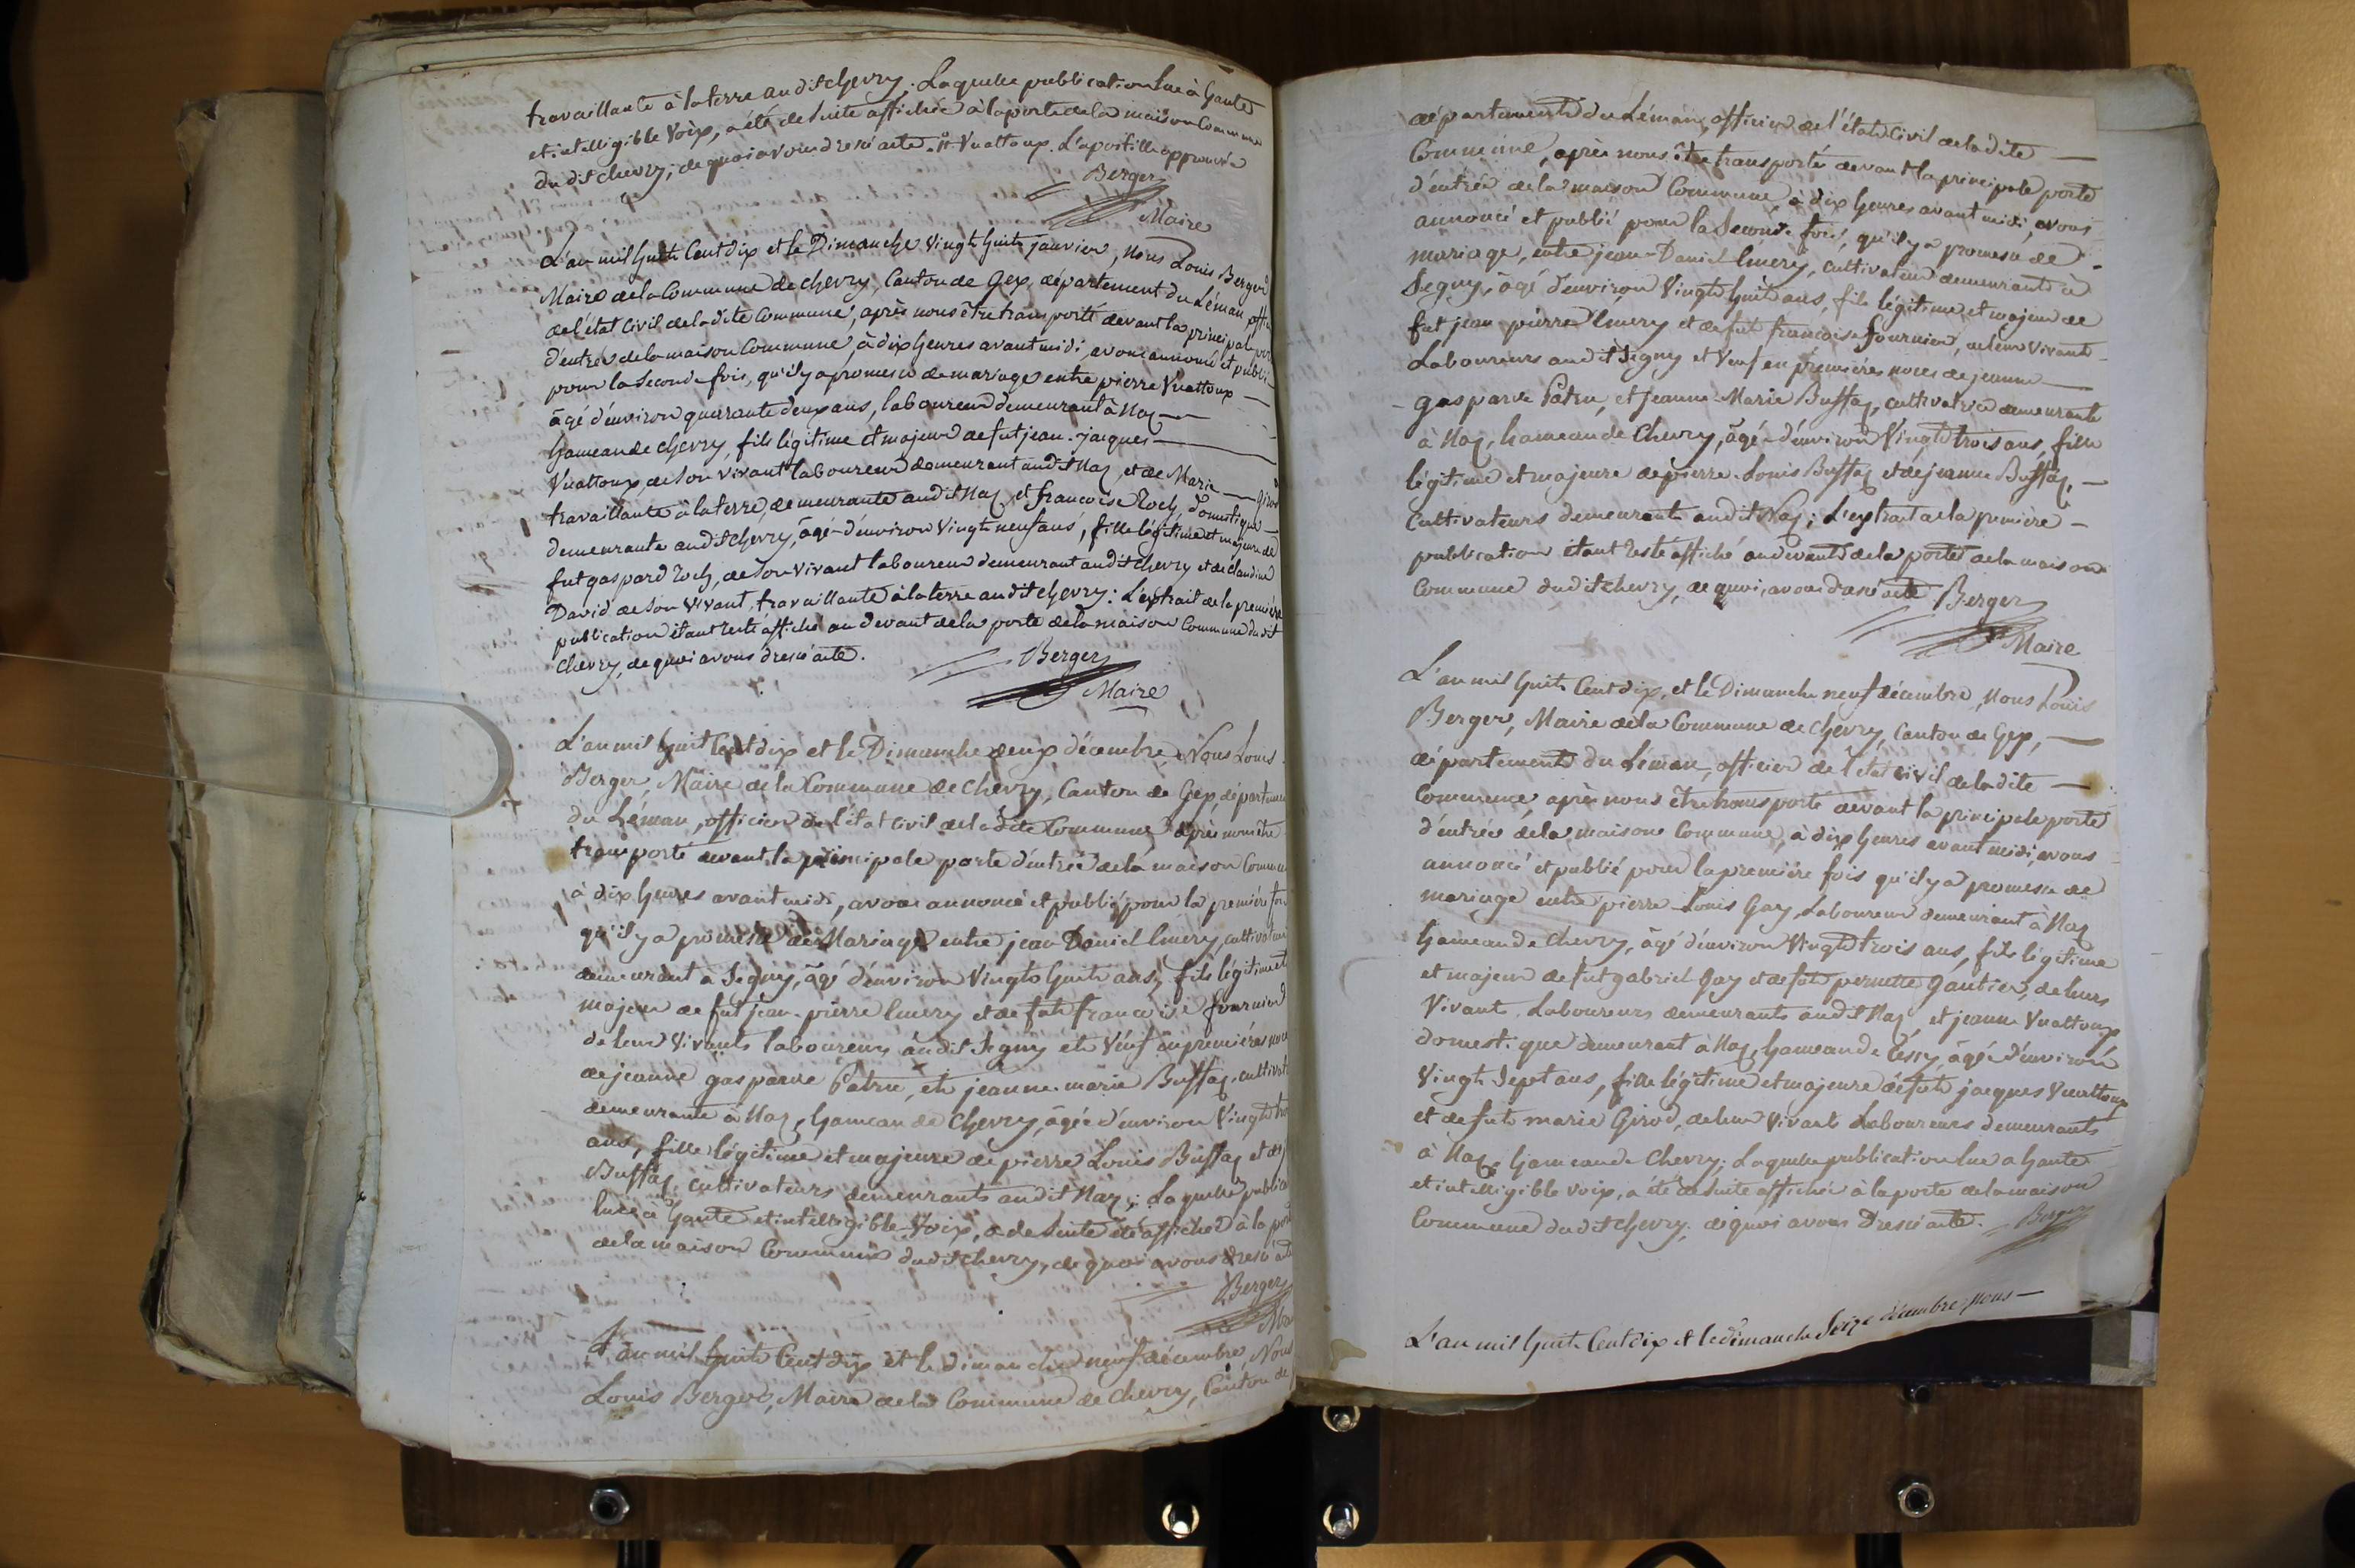 travaillante à la terre audit chevry. Laquelle publication lue à haute
et intelligible voix, a été de suite affichée à la porte de la maison Commune
du dit chevry; de quoi avons dressé acte. Vuattoux. L'apostille approuvée
Berger
Maire
L'an mil huit Cent dix et le Dimanche vingt huit janvier, Nous Louis Berger
Maire de la Commune de chevry, Canton de Gex, département du Léman offi
de l'état Civil de la dite Commune, après nous être transporté devant la principale por
d'entrée de la maison Commune, à dix heures avant midi, avons annoncé et publi
pour la Seconde fois, qu'il y a promesse de mariage entre pierre Vuattoux —
âgé d'environ quarante deux ans, laboureur demeurant à Naz —
hameau de chevry, fils légitime et majeur de fut jean-jacques —
Vuattoux, de Son vivant laboureur demeurant audit Naz, et de Marie — Girod
travaillante à la terre, demeurante audit Naz et françoise Roch, Domestique —
demeurante audit chevry, âgée d'environ Vingt neuf ans, fille légitime et majeure de
fut gaspard Roch, de Son vivant laboureur demeurant audit chevry et de Claudine
David de Son vivant, travaillante à la terre audit chevry: L'extrait de la première
publication étant resté affiché au devant de la porte de la maison Commune du dit
chevry, de quoi avons dressé acte.
Berger
Maire
L'an mil huit Cent dix et le Dimanche deux décembre, Nous Louis
Berger, Maire de la Commune de Chevry, Canton de Gex, départemen
du Léman, officier de l'état Civil de la dite Commune, après nous être
transporté devant la principale porte d'entrée de la maison Commu
à dix heures avant midi, avons annoncé et publié pour la première foi
qu'il y a promesse de Mariage entre jean Daniel Émery, cultivateur
demeurant à Segny, âgé d'environ Vingt huit ans, fils légitime et
majeur de fut jean-pierre Émery et de fute françoise fournier
de leur Vivants laboureurs audit Segny et Veuf en premières noce
de jeanne gasparde Patru, et jeanne-marie Buffaz, cultivat
demeurante à Naz, hameau de Chevry, âgée d'environ Vingt tro
ans, fille légitime et majeure de pierre Louis Buffaz et de j
Buffaz, cultivateurs demeurants audit Naz; Laquelle publica
lue à haute et intelligible Voix, a de Suite été affichée à la port
de la maison Commune dudit chevry, de quoi avons dressé acte
Berger
Ma
L'an mil huit Cent dix et le dimanche neuf décembre, Nous
Louis Berger, Maire de la Commune de chevry, Canton de
département du Léman, officier de l'état Civil de la dite —
Commune, après nous être transporté devant la principale porte
d'entrée de la maison Commune, à dix heures avant midi, avons
annoncé et publié pour la Seconde fois, qu'il y a promesse de
mariage, entre jean-Daniel Émery, cultivateur demeurant à
Segny, âgé d'environ Vingt huit ans, fils légitime et majeur de
fut jean-pierre Émery et de fute françoise fournier, de leur Vivant
Laboureurs audit Segny et Veuf en premières noces de jeanne —
gasparde Patru, et Jeanne-Marie Buffaz, cultivatrice demeurante
à Naz, hameau de Chevry, âgée d'environ Vingt trois ans, fille
légitime et majeure de pierre-Louis Buffaz et de jeanne Buffaz, —
Cultivateurs demeurants audit Naz; L'extrait de la première —
publication étant resté affiché au devant de la porte de la maison
Commune dudit chevry, de quoi avons dressé acte Berger
Maire
L'an mil huit Cent dix, et le Dimanche neuf décembre, Nous Louis
Berger, Maire de la Commune de chevry, Canton de Gex, —
département du Léman, officier de l'état civil de la dite —
Commune, après nous être transporté devant la principale porte
d'entrée de la maison Commune, à dix heures avant midi, avons
annoncé et publié pour la première fois qu'il y a promesse de
mariage entre pierre-Louis Gay, Laboureur demeurant à Naz
hameau de Chevry, âgé d'environ Vingt trois ans, fils légitime
et majeur de fut gabriel Gay et de fute pernette Gautier, de leurs
Vivant Laboureurs demeurants audit Naz, et jeanne Vuattoux
domestique demeurant à Naz, hameau de Cessy, âgée d'environ
Vingt Sept ans, fille légitime et majeure de fut jacques Vuattoux
et de fute marie Girod, de leur Vivant Laboureurs demeurants
à Naz, hameau de Chevry; Laquelle publication lue à haute
et intelligible voix, a été de Suite affichée à la porte de la maison
Commune dudit chevry; de quoi avons Dressé acte. Berger
L'an mil huit Cent dix et le dimanche Seize décembre, nous —